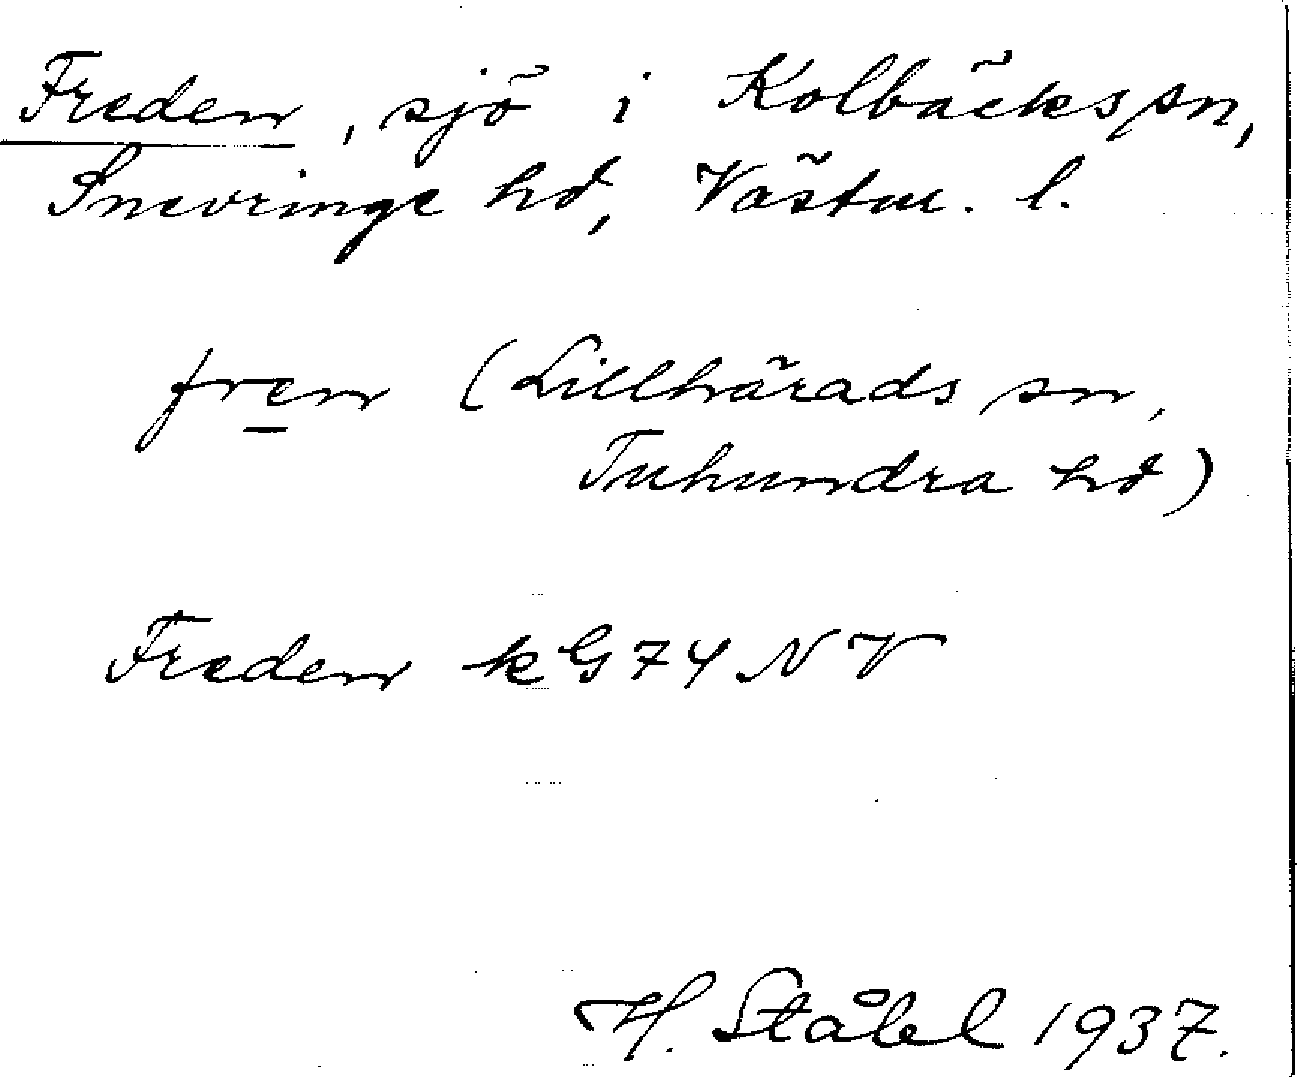 Freden, sjö i Kolbäcks sn,
Snevringe hd, Västm. l.
fren (Lillhärads sn,
Tuhundra hd)
Freden k G74 NV
H. Ståhl 1937.